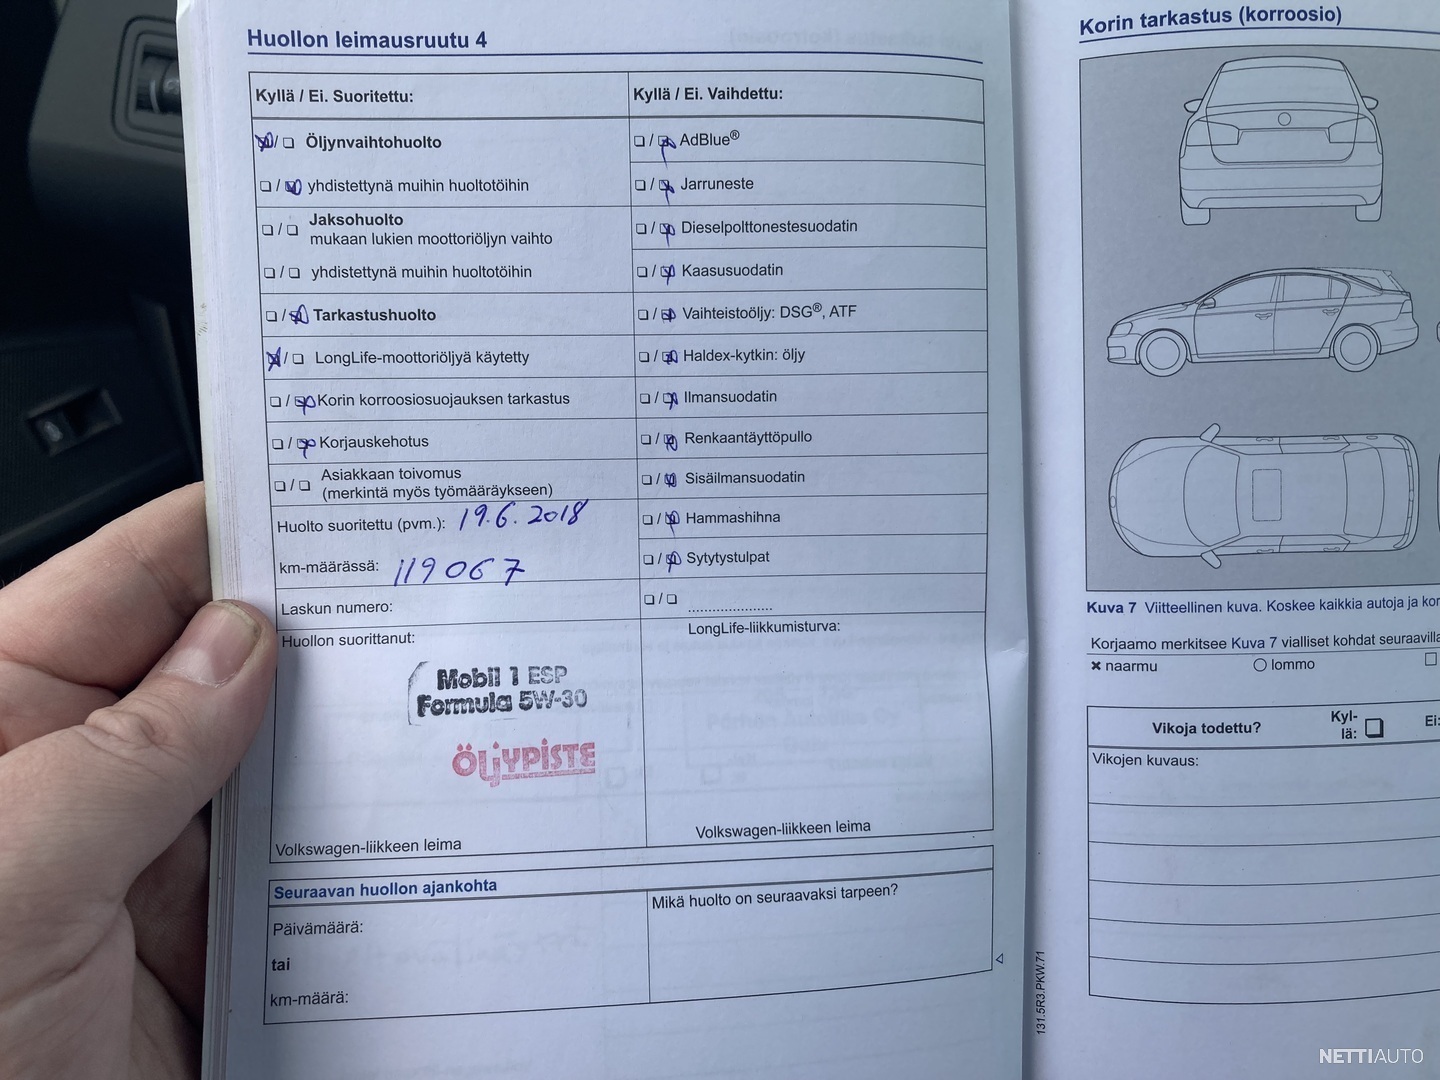 Huollon leimausruutu 4
Kyllä / Ei. Suoritettu:
Öljynvaihtohuolto
yhdistettynä muihin huoltotöihin
Jaksohuolto
mukaan lukien moottoriöljyn vaihto
yhdistettynä muihin huoltotöihin
Tarkastushuolto
LongLife-moottoriöljyä käytetty
Korin korroosiosuojauksen tarkastus
Korjauskehotus
Asiakkaan toivomus
(merkintä myös työmääräykseen)
Huolto suoritettu (pvm.): 19.6.2018
km-määrässä: 119067
Laskun numero:
Huollon suorittanut:
Mobil 1 ESP
Formula 5W-30
ÖLJYPISTE
Volkswagen-liikkeen leima
Kyllä / Ei. Vaihdettu:
AdBlue®
Jarruneste
Dieselpolttonestesuodatin
Kaasusuodatin
Vaihteistoöljy: DSG®, ATF
Haldex-kytkin: öljy
Ilmansuodatin
Renkaantäyttöpullo
Sisäilmansuodatin
Hammashihna
Sytytystulpat
LongLife-liikkumisturva:
Volkswagen-liikkeen leima
Seuraavan huollon ajankohta
Päivämäärä:
tai
km-määrä:
Mikä huolto on seuraavaksi tarpeen?
131.5R3.PKW.71
Korin tarkastus (korroosio)
Kuva 7 Viitteellinen kuva. Koskee kaikkia autoja ja kor
Korjaamo merkitsee Kuva 7 vialliset kohdat seuraavilla
naarmu
lommo
Vikoja todettu?
Kyl-
lä:
Ei:
Vikojen kuvaus:
NETTIAUTO